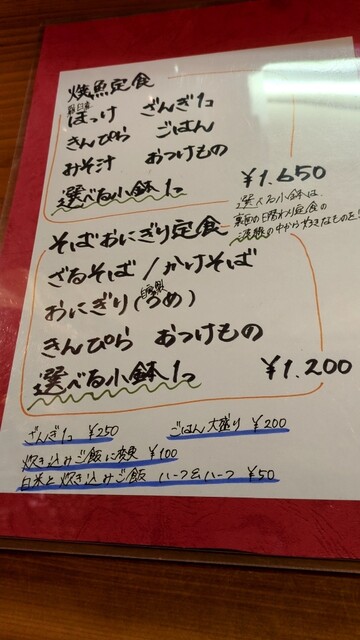 焼魚定食
羅臼産
ほっけ ざんぎ1コ
きんぴら ごはん
みそ汁 おつけもの
選べる小鉢1つ
¥1.650
選べる小鉢は、
裏面の日替わり定食の
中からお好きなものを!
そばおにぎり定食
ざるそば/かけそば
自家製
おにぎり(うめ)
きんぴら おつけもの
選べる小鉢1つ
¥1.200
ざんぎ1コ ¥250 ごはん大盛り ¥200
炊き込みご飯に変更 ¥100
白米と炊き込みご飯 ハーフ&ハーフ ¥50